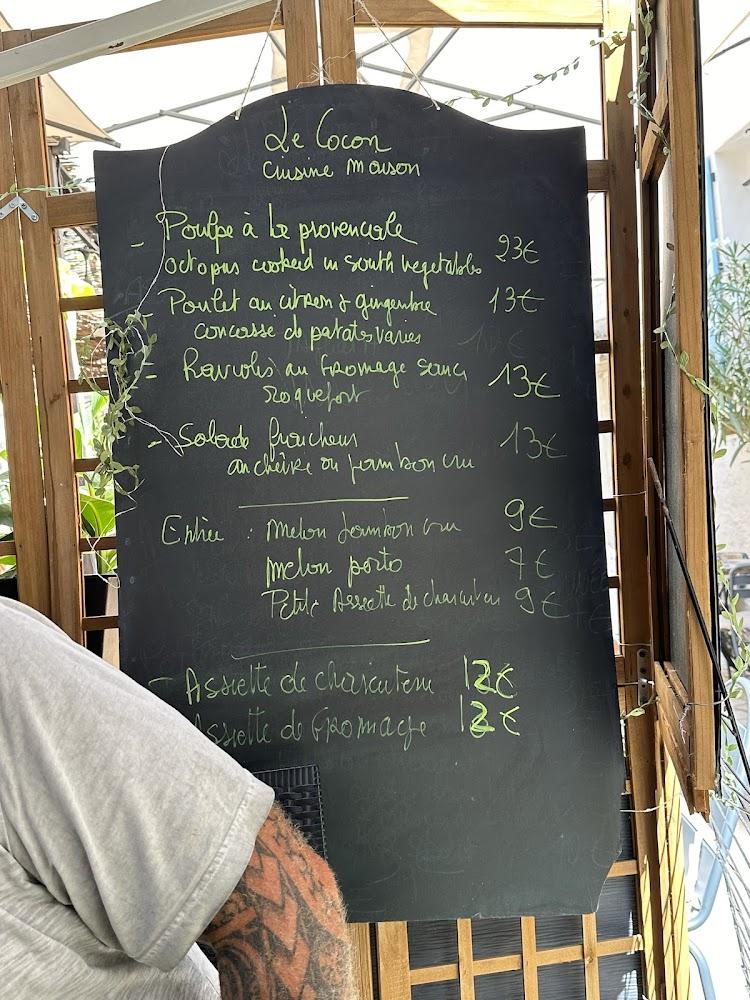 Le Cocon
Cuisine Maison
- Poulpe à la provençale 23€
octopus cooked in south vegetables
- Poulet au citron & gingembre 13€
concassé de patates varies
- Raviolis au fromage sauce 13€
roquefort
- Salade fraicheur 13€
au chèvre ou jambon cru
Entrée : Melon Jambon cru 9€
Melon porto 7€
Petite Assiette de charcuterie 9€
- Assiette de charcuterie 12€
Assiette de Fromage 12€